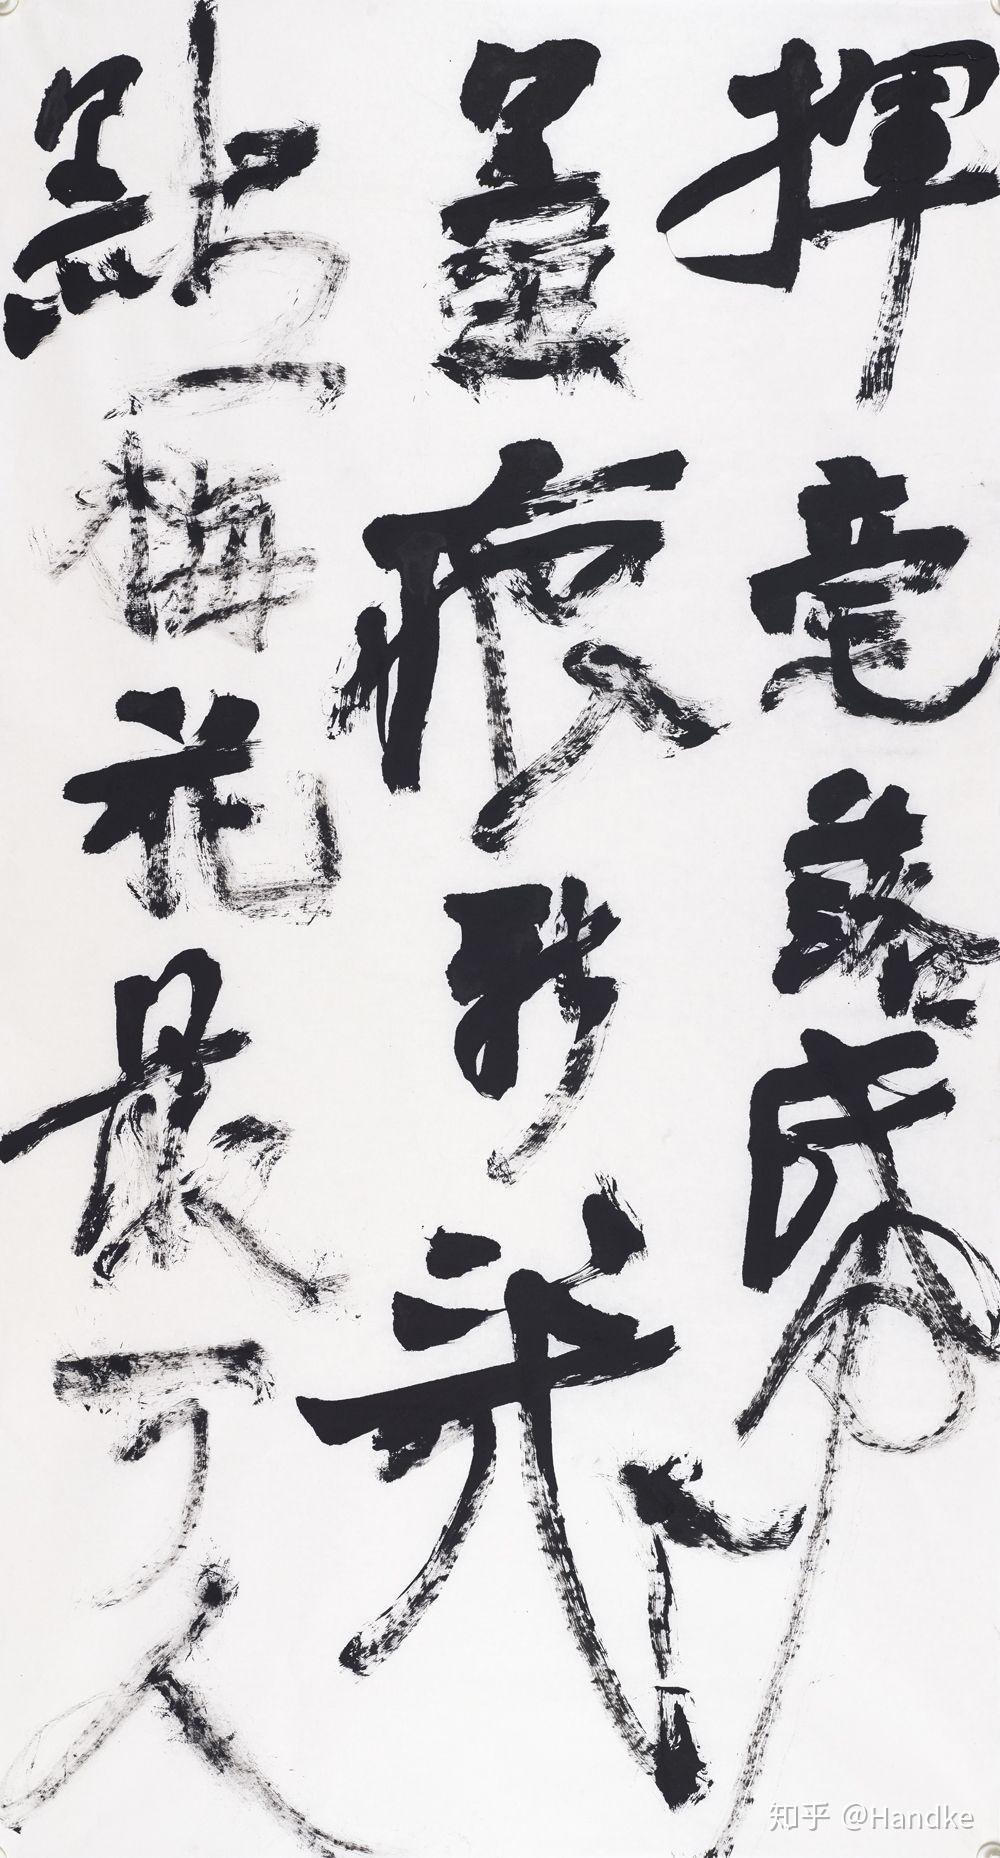 揮毫落帋
墨痕新幾
點梅花最可人
知乎 @Handke